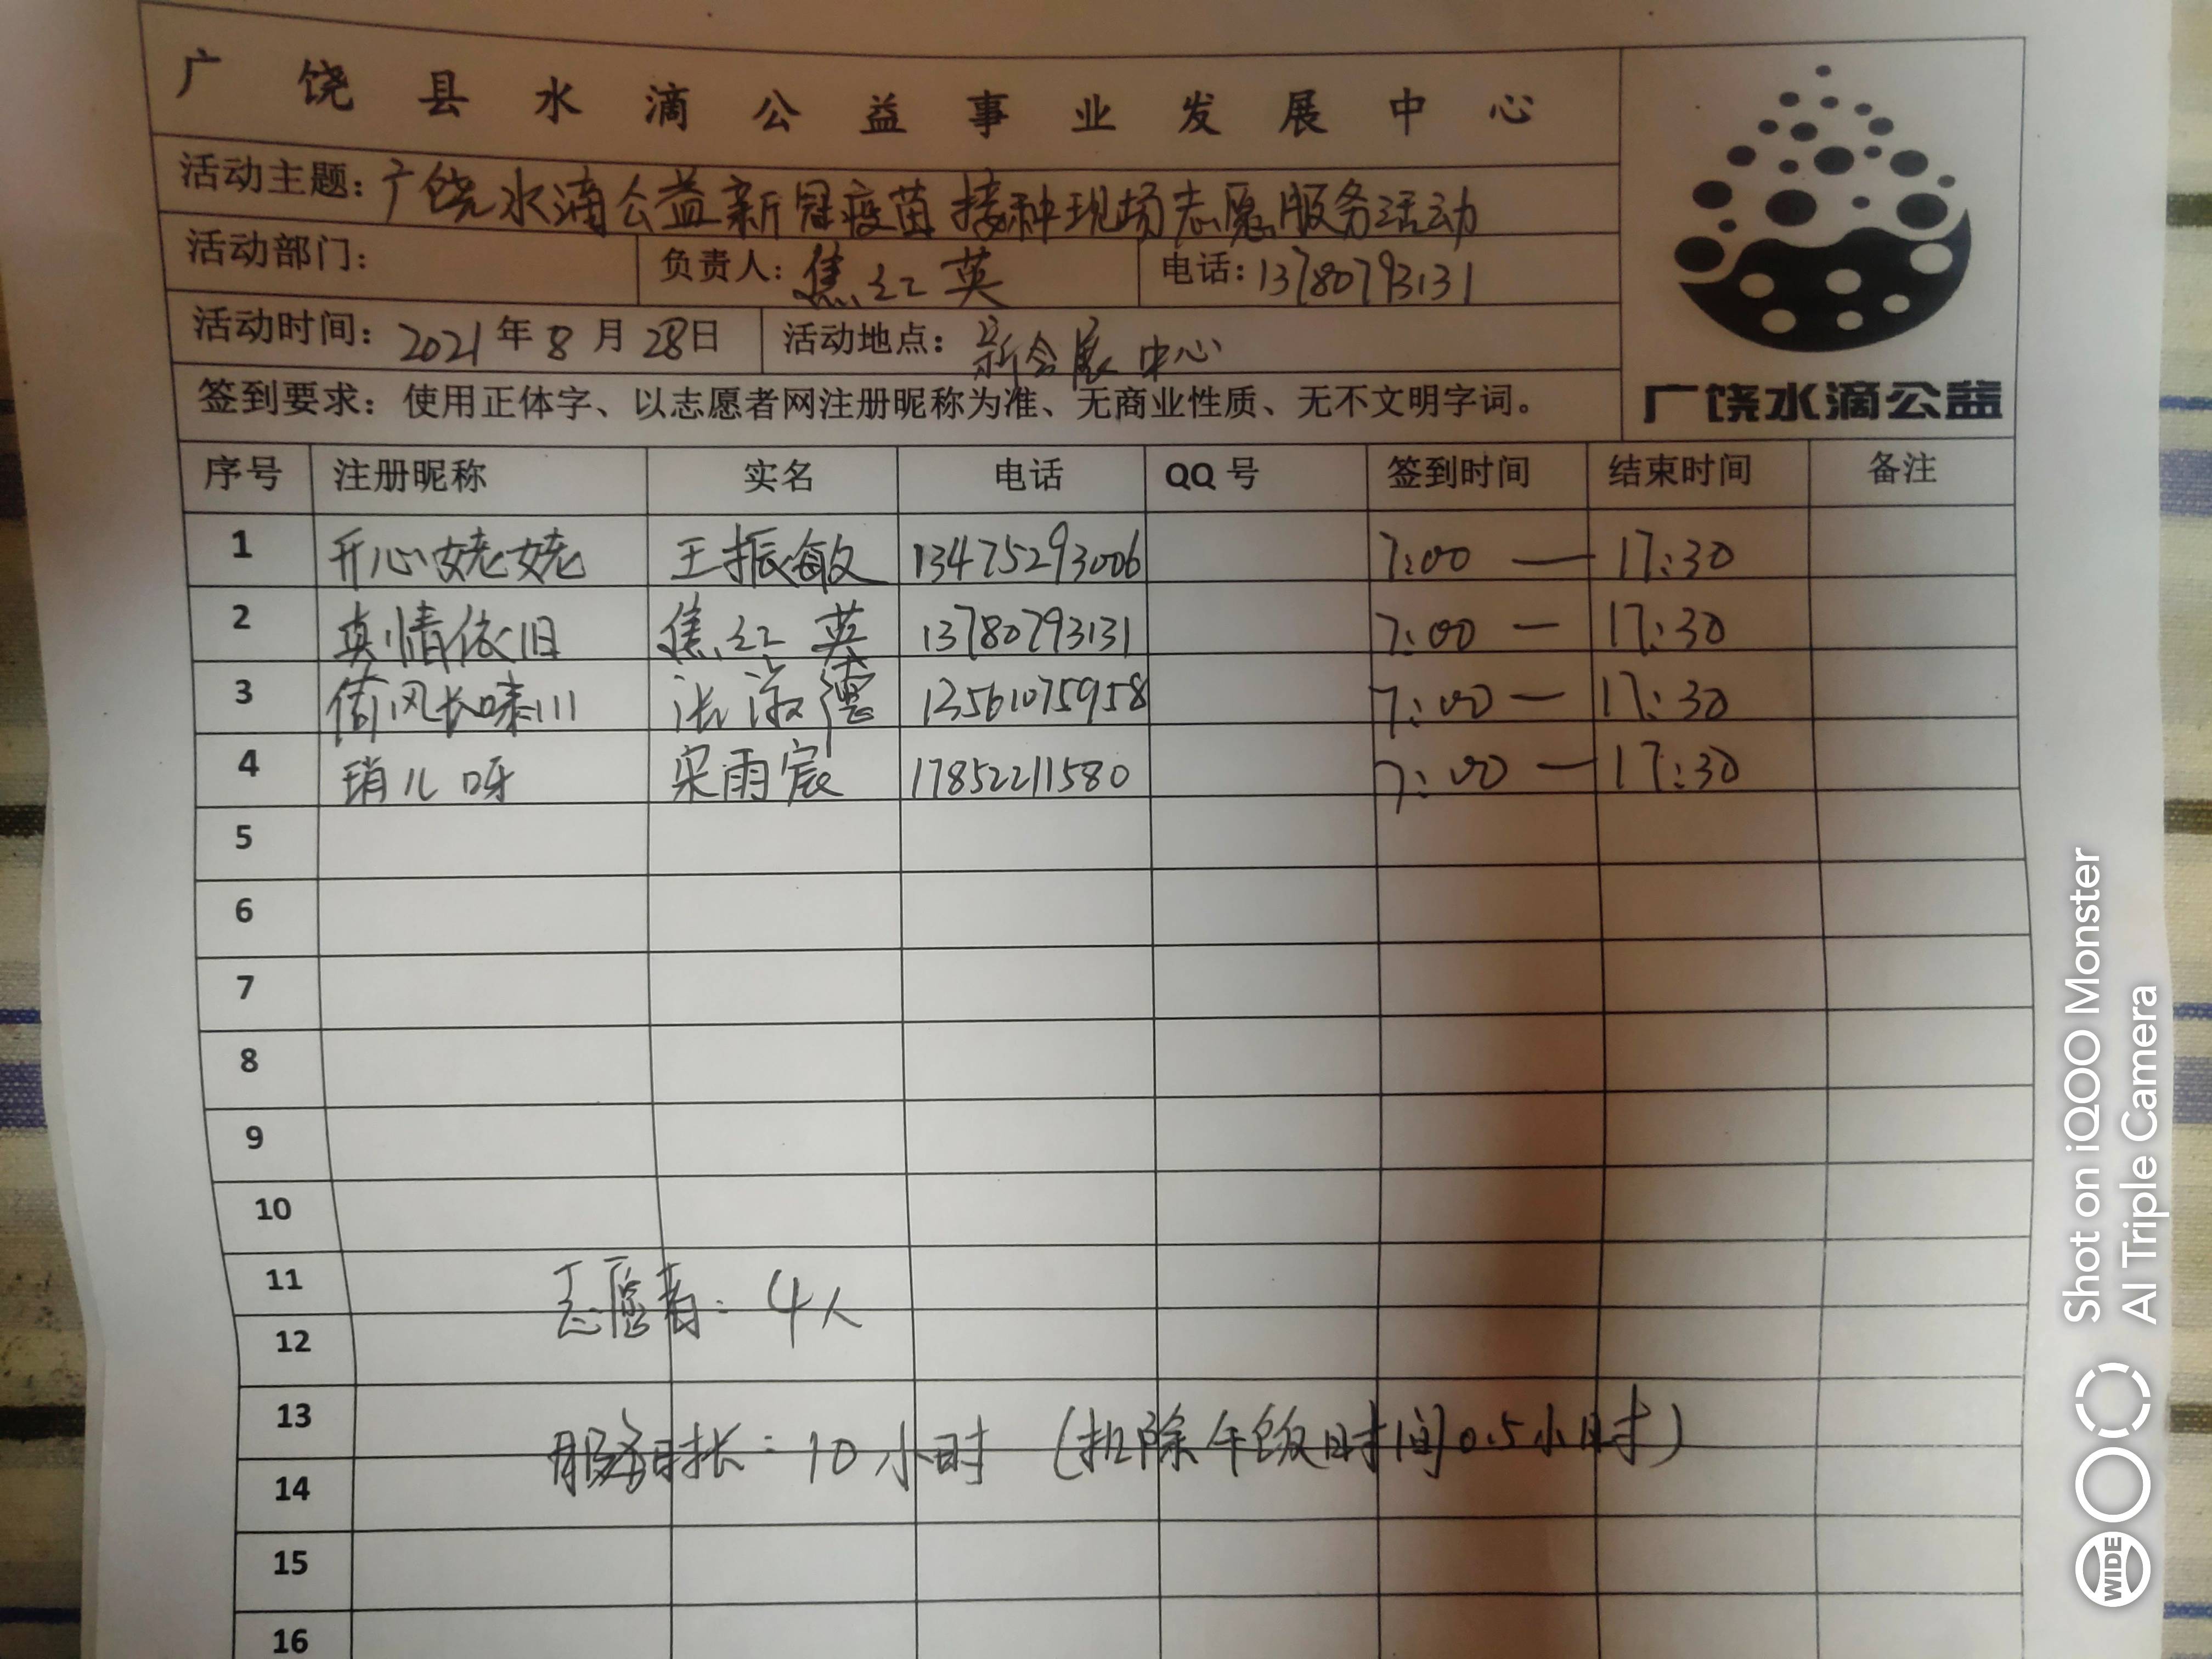 广饶县水滴公益事业发展中心
活动主题：广饶水滴公益新冠疫苗接种现场志愿服务活动
活动部门： 负责人：焦红英 电话：13780793131
活动时间：2021年8月28日 活动地点：新会展中心
签到要求：使用正体字、以志愿者网注册昵称为准、无商业性质、无不文明字词。
广饶水滴公益
序号 注册昵称 实名 电话 QQ号 签到时间 结束时间 备注
1 开心姥姥 王振敏 13475293006 7:00 — 17:30
2 真情依旧 焦红英 13780793131 7:00 — 17:30
3 风长 张 13561075958 7:00 — 17:30
4 琑儿呀 宋雨宸 17852211580 7:00 — 17:30
5
6
7
8
9
10
11
志愿者：4人
12
13
服务时长：10小时（扣除午饭时间0.5小时）
14
15
16
Shot on iQOO Monster
AI Triple Camera
WIDE